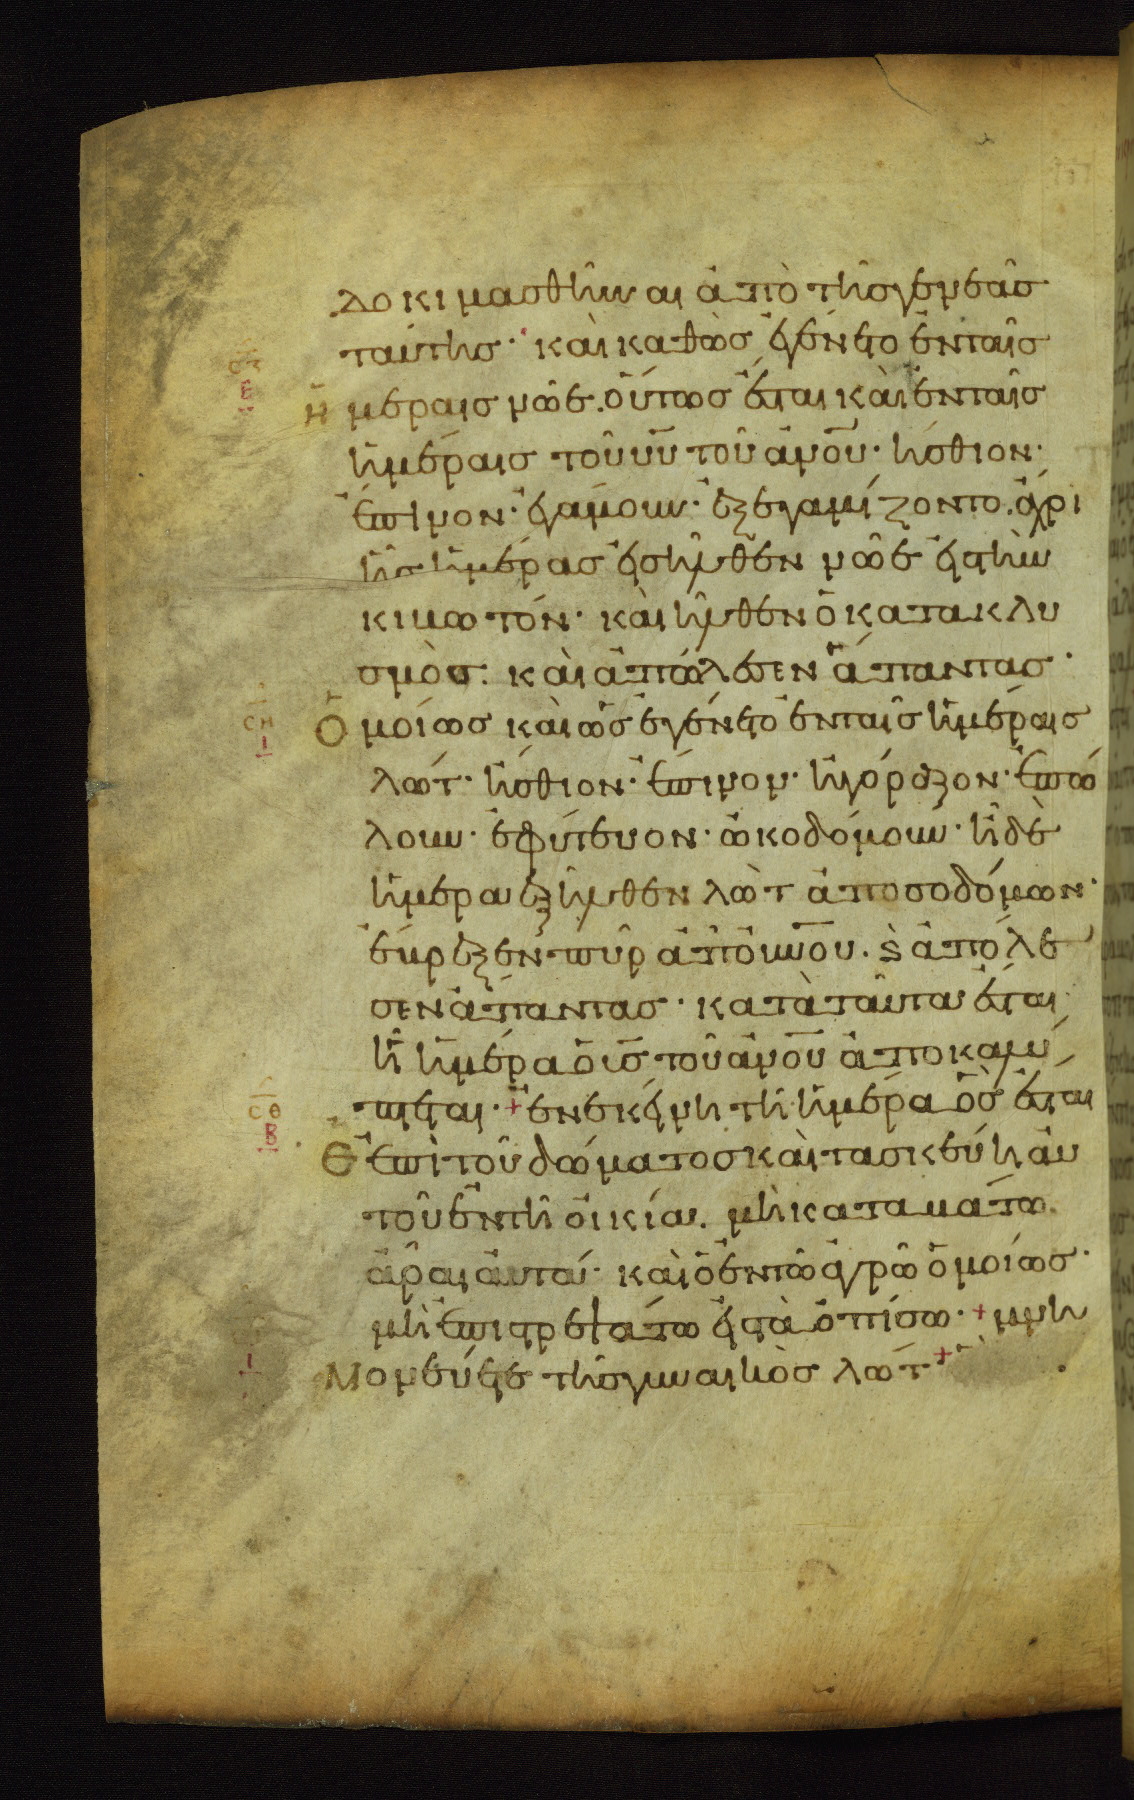 δοκιμασθῆναι ἀπὸ τῆς γενεᾶς
ταύτης· καὶ καθὼς ἐγένετο ἐν ταῖς
ἡμέραις νῶε. οὕτως ἔσται καὶ ἐν ταῖς
ἡμέραις τοῦ υ̅υ̅ τοῦ α̅ν̅ο̅υ̅· ἤσθιον·
ἔπινον· ἐγάμουν· ἐξεγαμίζοντο. ἄχρι
ἧς ἡμέρας εἰσῆλθεν νῶε εἰς τὴν
κιβωτόν· καὶ ἦλθεν ὁ κατακλυ
σμὸς· καὶ ἀπώλεσεν ἅπαντας·
Ὁμοίως καὶ ὡς ἐγένετο ἐν ταῖς ἡμέραις
λώτ· ἤσθιον· ἔπινον· ἠγόραζον· ἐπώ
λουν· ἐφύτευον· ὠκοδόμουν· ἧ δὲ
ἡμέρα ἐξῆλθεν λὼτ ἀπο σοδόμων·
ἔβρεξεν πῦρ ἀπ ο̅υ̅ν̅ο̅υ̅. ϗ ἀπόλε
σεν ἅπαντας· κατὰ ταῦτα ἔσται
ἧ ἡμέρα ὁ υ̅ς̅ τοῦ α̅ν̅ο̅υ̅ ἀποκαλύ
πτεται· + ἐν ἐκείνη τῆ ἡμέρα ὃς ἔσται
Ἐ ἐπὶ τοῦ δώματος καὶ τα σκεύη αὐ
τοῦ ἐν τῆ οἰκία. μὴ καταβάτω
ἆραι αὐτά· καὶ ὁ ἐν τῶ ἀγρῶ ὁμοίως·
μὴ ἐπιστρεψάτω εἰς τὰ ὀπίσω· + μνη
Μονεύετε τῆς γυναικὸς λώτ +
σ̅ζ̅
ε
σ̅η̅
ι
σ̅θ̅
β
ι